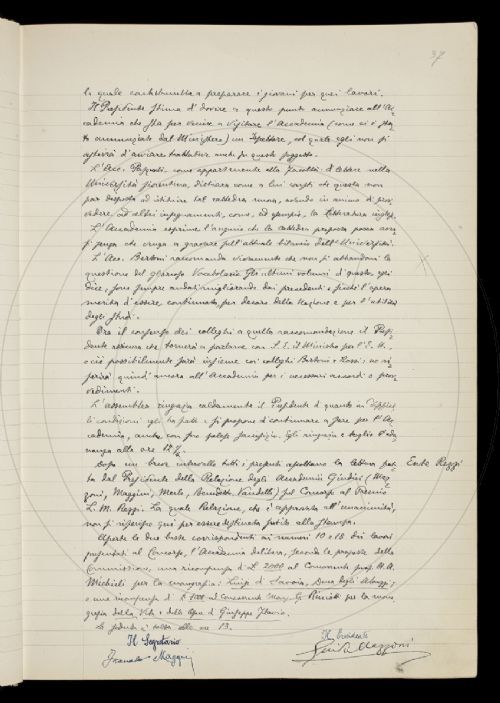 37
la quale contribuirebbe a preparare i giovani per quei lavori.
Il Presidente stima d'dovere a questo punto annunziare all'Ac-
cademia che sta per venire a visitare l'Accademia (come ci è sta-
to annunziato dal Ministero) un Ispettore, col quale egli non si
asterrà d'avviare trattative anche su questo soggetto.
L'Acc. Pasquali, come appartenente alla Facoltà d'lettere nella
Università fiorentina, dichiara come a lui consti che questa non
par disposta ad istituire tal cattedra nuova, avendo in animo di prov-
vedere, ad altri insegnamenti, come, ad esempio, la letteratura inglese.
L'Accademia esprime l'augurio che la cattedra proposta possa aver-
si senza che venga a gravare sull'attuale bilancio dell'Università.
L'Acc. Bertoni raccomanda vivamente che non si abbandoni la
questione del glorioso Vocabolario. Gli ultimi volumi d'questo, egli
dice, sono sempre andati migliorando dai precedenti e perciò l'opera
merita d'essere continuata, per decoro della Nazione e per l'utilità
degli studi.
Ora il consenso dei colleghi a quella raccomandazione il Presi-
dente assicura che tornerà a parlarne con S. E. il Ministro per l'E. N.
e ciò possibilmente farà insieme coi colleghi Bertoni e Rossi; ne ri-
ferirà quind' ancora all'Accademia per i necessari accordi e prov-
vedimenti.
L'assemblea ringrazia caldamente il Presidente d' quanto in
condizioni egli ha fatto e si propone d'continuare a fare per l'Ac-
cademia, anche con suo sacrifizio. Egli ringrazia e toglie l'adu-
nanza alle ore 12 ½.
Dopo un breve intervallo tutti i presenti ascoltano la lettura fat-
Ente Rezzi
ta dal Presidente della Relazione degli Accademici Giudici (Maz-
zoni, Maggini, Merlo, Benedetti, Vandelli) sul Concorso al Premio
L. M. Rezzi. La quale Relazione, che è approvata all'unanimità,
non si riferisce qui per essere destinata subito alla stampa.
Aperte le due buste corrispondenti ai numeri 10 e 18 dei lavori
presentati al Concorso, l'Accademia delibera, secondo la proposta della
Commissione, una ricompensa d' L. 2000 al Concorrente prof. A. A.
Michieli per la monografia: Luigi di Savoia, Duca degli Abruzzi;
e una ricompensa d' L. 1000 al Concorrente Ricciotti per la mono-
grafia della Vita e delle opere d' Giuseppe Flavio.
La seduta è tolta alle ore 13.
Il Segretario
Il Presidente
Francesco Maggini
Guido Mazzoni